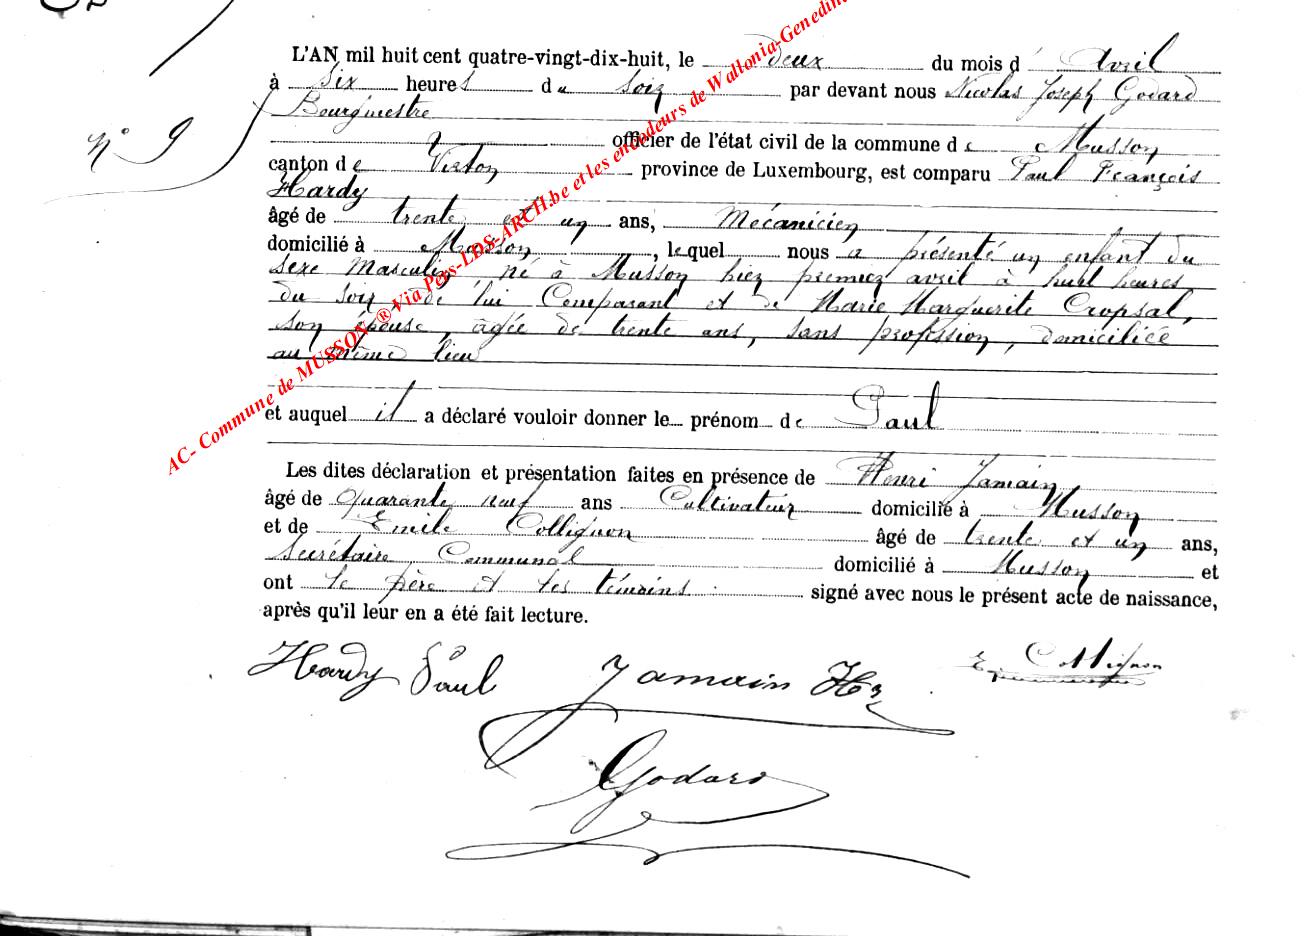 L'AN mil huit cent quatre-vingt-dix-huit, le deux du mois d' Avril
à six heures du soir par devant nous Nicolas Joseph Godard
Bourgmestre
officier de l'état civil de la commune de Musson
canton de Virton province de Luxembourg, est comparu Paul François
Hardy
âgé de trente et un ans, Mécanicien
domicilié à Musson, lequel nous a présenté un enfant du
sexe Masculin, né à Musson hier premier avril à huit heures
du soir de lui Comparant et de Marie Marguerite Cropsal,
son épouse, agée de trente ans, sans profession, domiciliée
au même lieu
et auquel il a déclaré vouloir donner le prénom de Paul
Les dites déclaration et présentation faites en présence de Henri Jamain
âgé de Quarante neuf ans Cultivateur domicilié à Musson
et de Emile Collignon âgé de trente et un ans,
Secrétaire Communal domicilié à Musson et
ont le père et les témoins signé avec nous le présent acte de naissance,
après qu'il leur en a été fait lecture.
N° 9
Hardy Paul Jamain Hri E. Collignon
Godard
AC- Commune de MUSSON ® Via Pers-LDS-ARCH.be et les encodeurs de Wallonia-Genedin